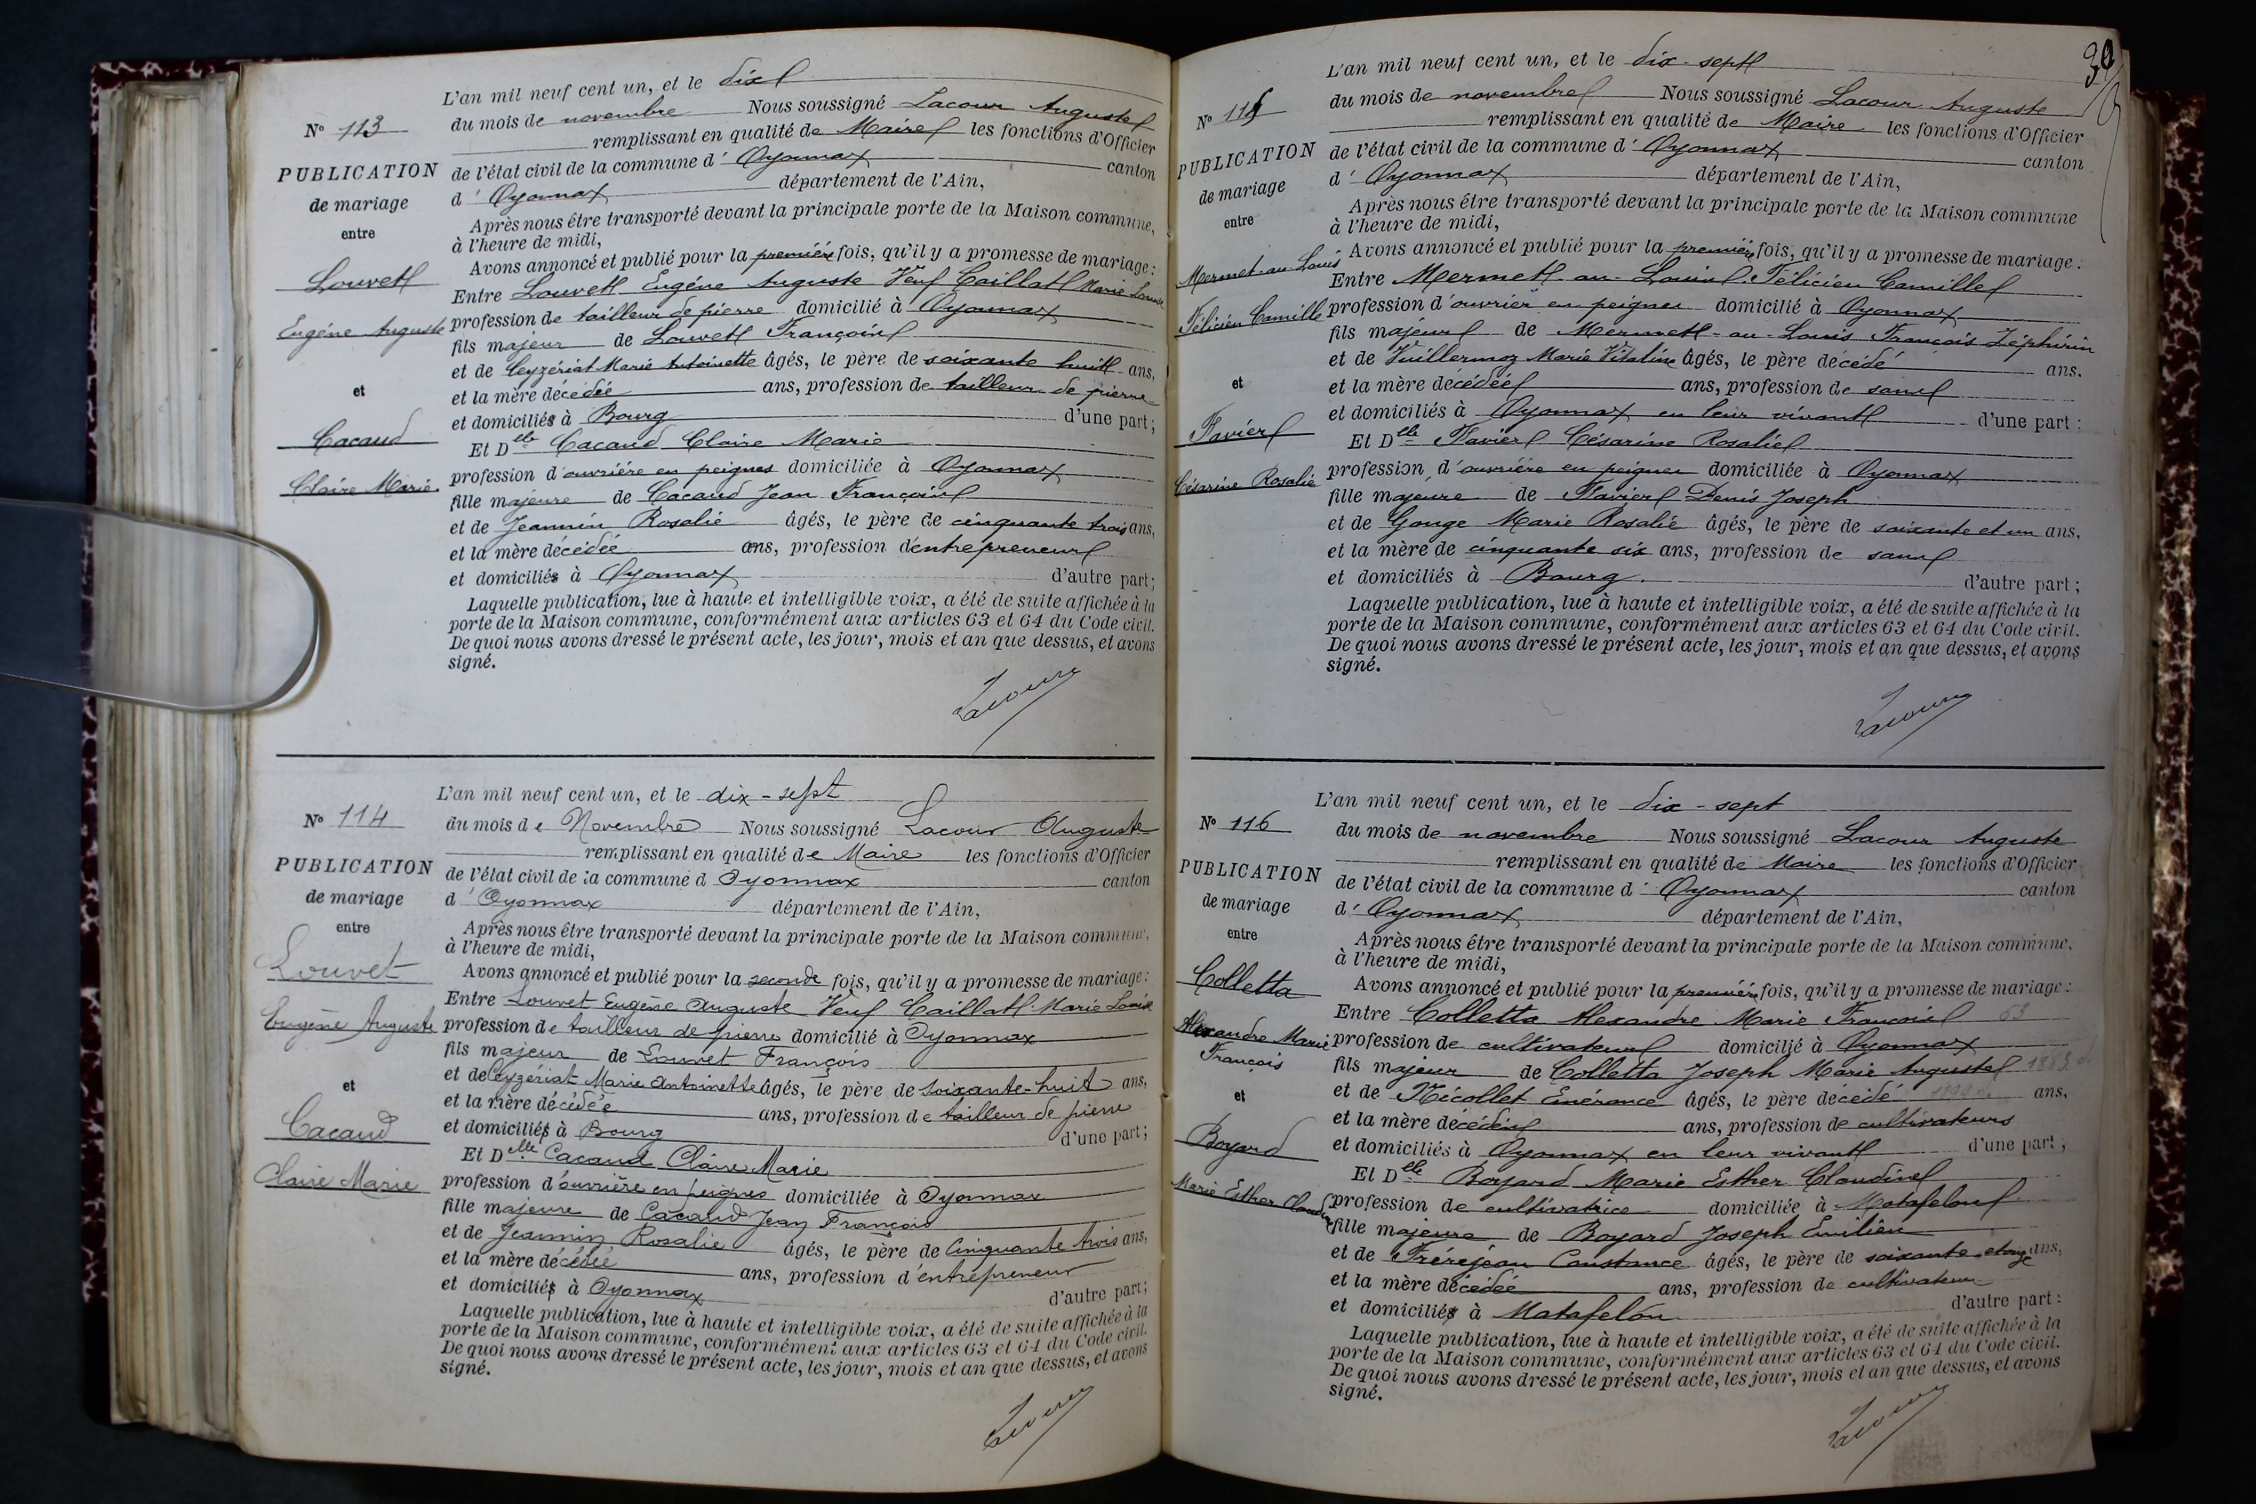 L'an mil neuf cent un, et le dix
N° 113
du mois de novembre Nous soussigné Lacour Auguste
remplissant en qualité de Maire les fonctions d'Officier
PUBLICATION
de mariage
entre
de l'état civil de la commune d' Oyonnax canton
d' Oyonnax département de l'Ain,
Après nous être transporté devant la principale porte de la Maison commune,
à l'heure de midi,
Avons annoncé et publié pour la première fois, qu'il y a promesse de mariage :
Louvet
Eugène Auguste
et
Cacaud
Claire Marie
Entre Louvet Eugène Auguste Veuf Caillat Marie Louise
profession de tailleur de pierre domicilié à Oyonnax
fils majeur de Louvet François
et de Ceyzériat Marie Antoinette âgés, le père de soixante huit ans,
et la mère décédée ans, profession de tailleur de pierre
et domiciliés à Bourg d'une part ;
Et Delle Cacaud Claire Marie
profession d'ouvrière en peignes domiciliée à Oyonnax
fille majeure de Cacaud Jean François
et de Jeannin Rosalie âgés, le père de cinquante trois ans,
et la mère décédée ans, profession d'entrepreneur
et domiciliés à Oyonnax d'autre part ;
Laquelle publication, lue à haute et intelligible voix, a été de suite affichée à la
porte de la Maison commune, conformément aux articles 63 et 64 du Code civil.
De quoi nous avons dressé le présent acte, les jour, mois et an que dessus, et avons
signé.
Lacour
L'an mil neuf cent un, et le dix-sept
N° 114
du mois de Novembre Nous soussigné Lacour Auguste
remplissant en qualité de Maire les fonctions d'Officier
PUBLICATION
de mariage
entre
de l'état civil de la commune d Oyonnax canton
d' Oyonnax département de l'Ain,
Après nous être transporté devant la principale porte de la Maison commune,
à l'heure de midi,
Avons annoncé et publié pour la seconde fois, qu'il y a promesse de mariage :
Louvet
Eugène Auguste
et
Cacaud
Claire Marie
Entre Louvet Eugène Auguste Veuf Caillat Marie Louise
profession de tailleur de pierre domicilié à Oyonnax
fils majeur de Louvet François
et de Ceyzériat Marie Antoinette âgés, le père de soixante-huit ans,
et la mère décédée ans, profession de tailleur de pierre
et domiciliés à Bourg d'une part ;
Et Delle Cacaud Claire Marie
profession d'ouvrière en peignes domiciliée à Oyonnax
fille majeure de Cacaud Jean François
et de Jeannin Rosalie âgés, le père de Cinquante trois ans,
et la mère décédée ans, profession d'entrepreneur
et domiciliés à Oyonnax d'autre part ;
Laquelle publication, lue à haute et intelligible voix, a été de suite affichée à la
porte de la Maison commune, conformément aux articles 63 et 64 du Code civil.
De quoi nous avons dressé le présent acte, les jour, mois et an que dessus, et avons
signé.
Lacour
30
L'an mil neuf cent un, et le dix-sept
N° 115
du mois de novembre Nous soussigné Lacour Auguste
remplissant en qualité de Maire les fonctions d'Officier
PUBLICATION
de mariage
entre
de l'état civil de la commune d' Oyonnax canton
d' Oyonnax département de l'Ain,
Après nous être transporté devant la principale porte de la Maison commune
à l'heure de midi,
Avons annoncé et publié pour la première fois, qu'il y a promesse de mariage :
Mermet-au-Louis
Félicien Camille
et
Favier
Césarine Rosalie
Entre Mermet-au-Louis Félicien Camille
profession d'ouvrier en peignes domicilié à Oyonnax
fils majeur de Mermet-au-Louis François Zéphirin
et de Vuillermoz Marie Vitaline âgés, le père décédé ans.
et la mère décédée ans, profession de sans
et domiciliés à Oyonnax en leur vivant d'une part ;
Et Delle Favier Césarine Rosalie
profession d'ouvrière en peignes domiciliée à Oyonnax
fille majeure de Favier Denis Joseph
et de Gouge Marie Rosalie âgés, le père de soixante et un ans,
et la mère de cinquante six ans, profession de sans
et domiciliés à Bourg. d'autre part ;
Laquelle publication, lue à haute et intelligible voix, a été de suite affichée à la
porte de la Maison commune, conformément aux articles 63 et 64 du Code civil.
De quoi nous avons dressé le présent acte, les jour, mois et an que dessus, et avons
signé.
Lacour
L'an mil neuf cent un, et le dix-sept
N° 116
du mois de novembre Nous soussigné Lacour Auguste
remplissant en qualité de Maire les fonctions d'Officier
PUBLICATION
de mariage
entre
de l'état civil de la commune d' Oyonnax canton
d' Oyonnax département de l'Ain,
Après nous être transporté devant la principale porte de la Maison commune,
à l'heure de midi,
Avons annoncé et publié pour la première fois, qu'il y a promesse de mariage :
Colletta
Alexandre Marie
François
et
Boyard
Marie Esther Claudine
Entre Colletta Alexandre Marie François 63
profession de cultivateur domicilié à Oyonnax
fils majeur de Colletta Joseph Marie Auguste 1883
et de Nicollet Enerance âgés, le père décédé ans,
et la mère décédée ans, profession de cultivateurs
et domiciliés à Oyonnax en leur vivant d'une part ;
Et Delle Boyard Marie Esther Claudine
profession de cultivatrice domiciliée à Matafelon
fille majeure de Boyard Joseph Emilien
et de Frèrejean Constance âgés, le père de soixante et onze ans,
et la mère décédée ans, profession de cultivateur
et domiciliés à Matafelon d'autre part :
Laquelle publication, lue à haute et intelligible voix, a été de suite affichée à la
porte de la Maison commune, conformément aux articles 63 et 64 du Code civil.
De quoi nous avons dressé le présent acte, les jour, mois et an que dessus, et avons
signé.
Lacour